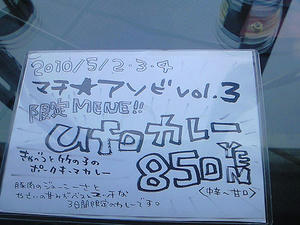 2010/5/2・3・4
マチ★アソビ vol.3
限定MENE!!
ufoカレー
きゃべつと竹の子の
ポークキーマカレー
850YEN
<中辛〜甘口>
豚肉のジューシーさと
やさいの甘みが
3日間限定のカレーです。